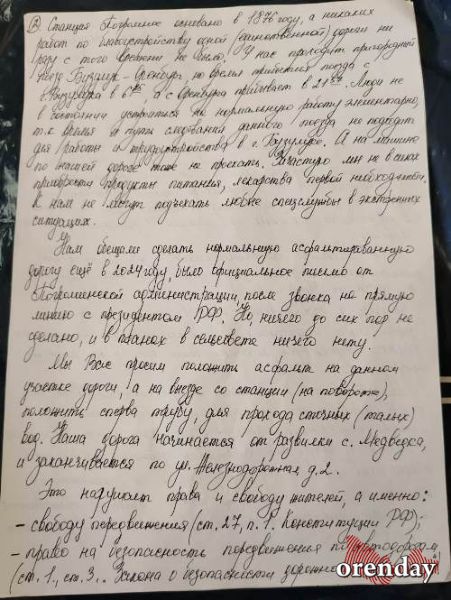 ② Станция Погромное основано в 1876 году, а никаких
работ по благоустройству одной (единственной) дороги ни
разу с того времени не было. У нас проходит пригородный
поезд Бузулук – Оренбург, но время прибытия поезда с
Бузулука в а с Оренбурга прибывает в Люди не
в состоянии устроиться на нормальную работу элементарно,
т.к. время и путь следования данного поезда не подходит
для работы и трудоустройства в г. Бузулуке. А на машине
по нашей дороге тоже не проехать. Зачастую мы не в силах
приобрести продукты питания, лекарства первой необходимости.
К нам не могут подъехать любые спецслужбы в экстренных
ситуациях.
Нам обещали сделать нормальную асфальтированную
дорогу ещё в 2024 году, было официальное письмо от
Погроменской администрации, после звонка на прямую
линию с президентом РФ. Но, ничего до сих пор не
сделано, и в планах в сельсовете ничего нету.
Мы Вас просим положить асфальт на данном
участке дороги, а на выезде со станции (на повороте),
положить сперва трубу, для прохода сточных (талых)
вод. Наша дорога начинается от развилки с. Медведка,
и заканчивается по ул. Железнодорожная д. 2.
Это нарушает права и свободу жителей, а именно:
– свободу передвижения (ст. 27, п. 1. Конституции РФ);
– право на безопасность передвижения по автодорогам
(ст. 1., ст. 3.. Закона о безопасности дорожного
orenday